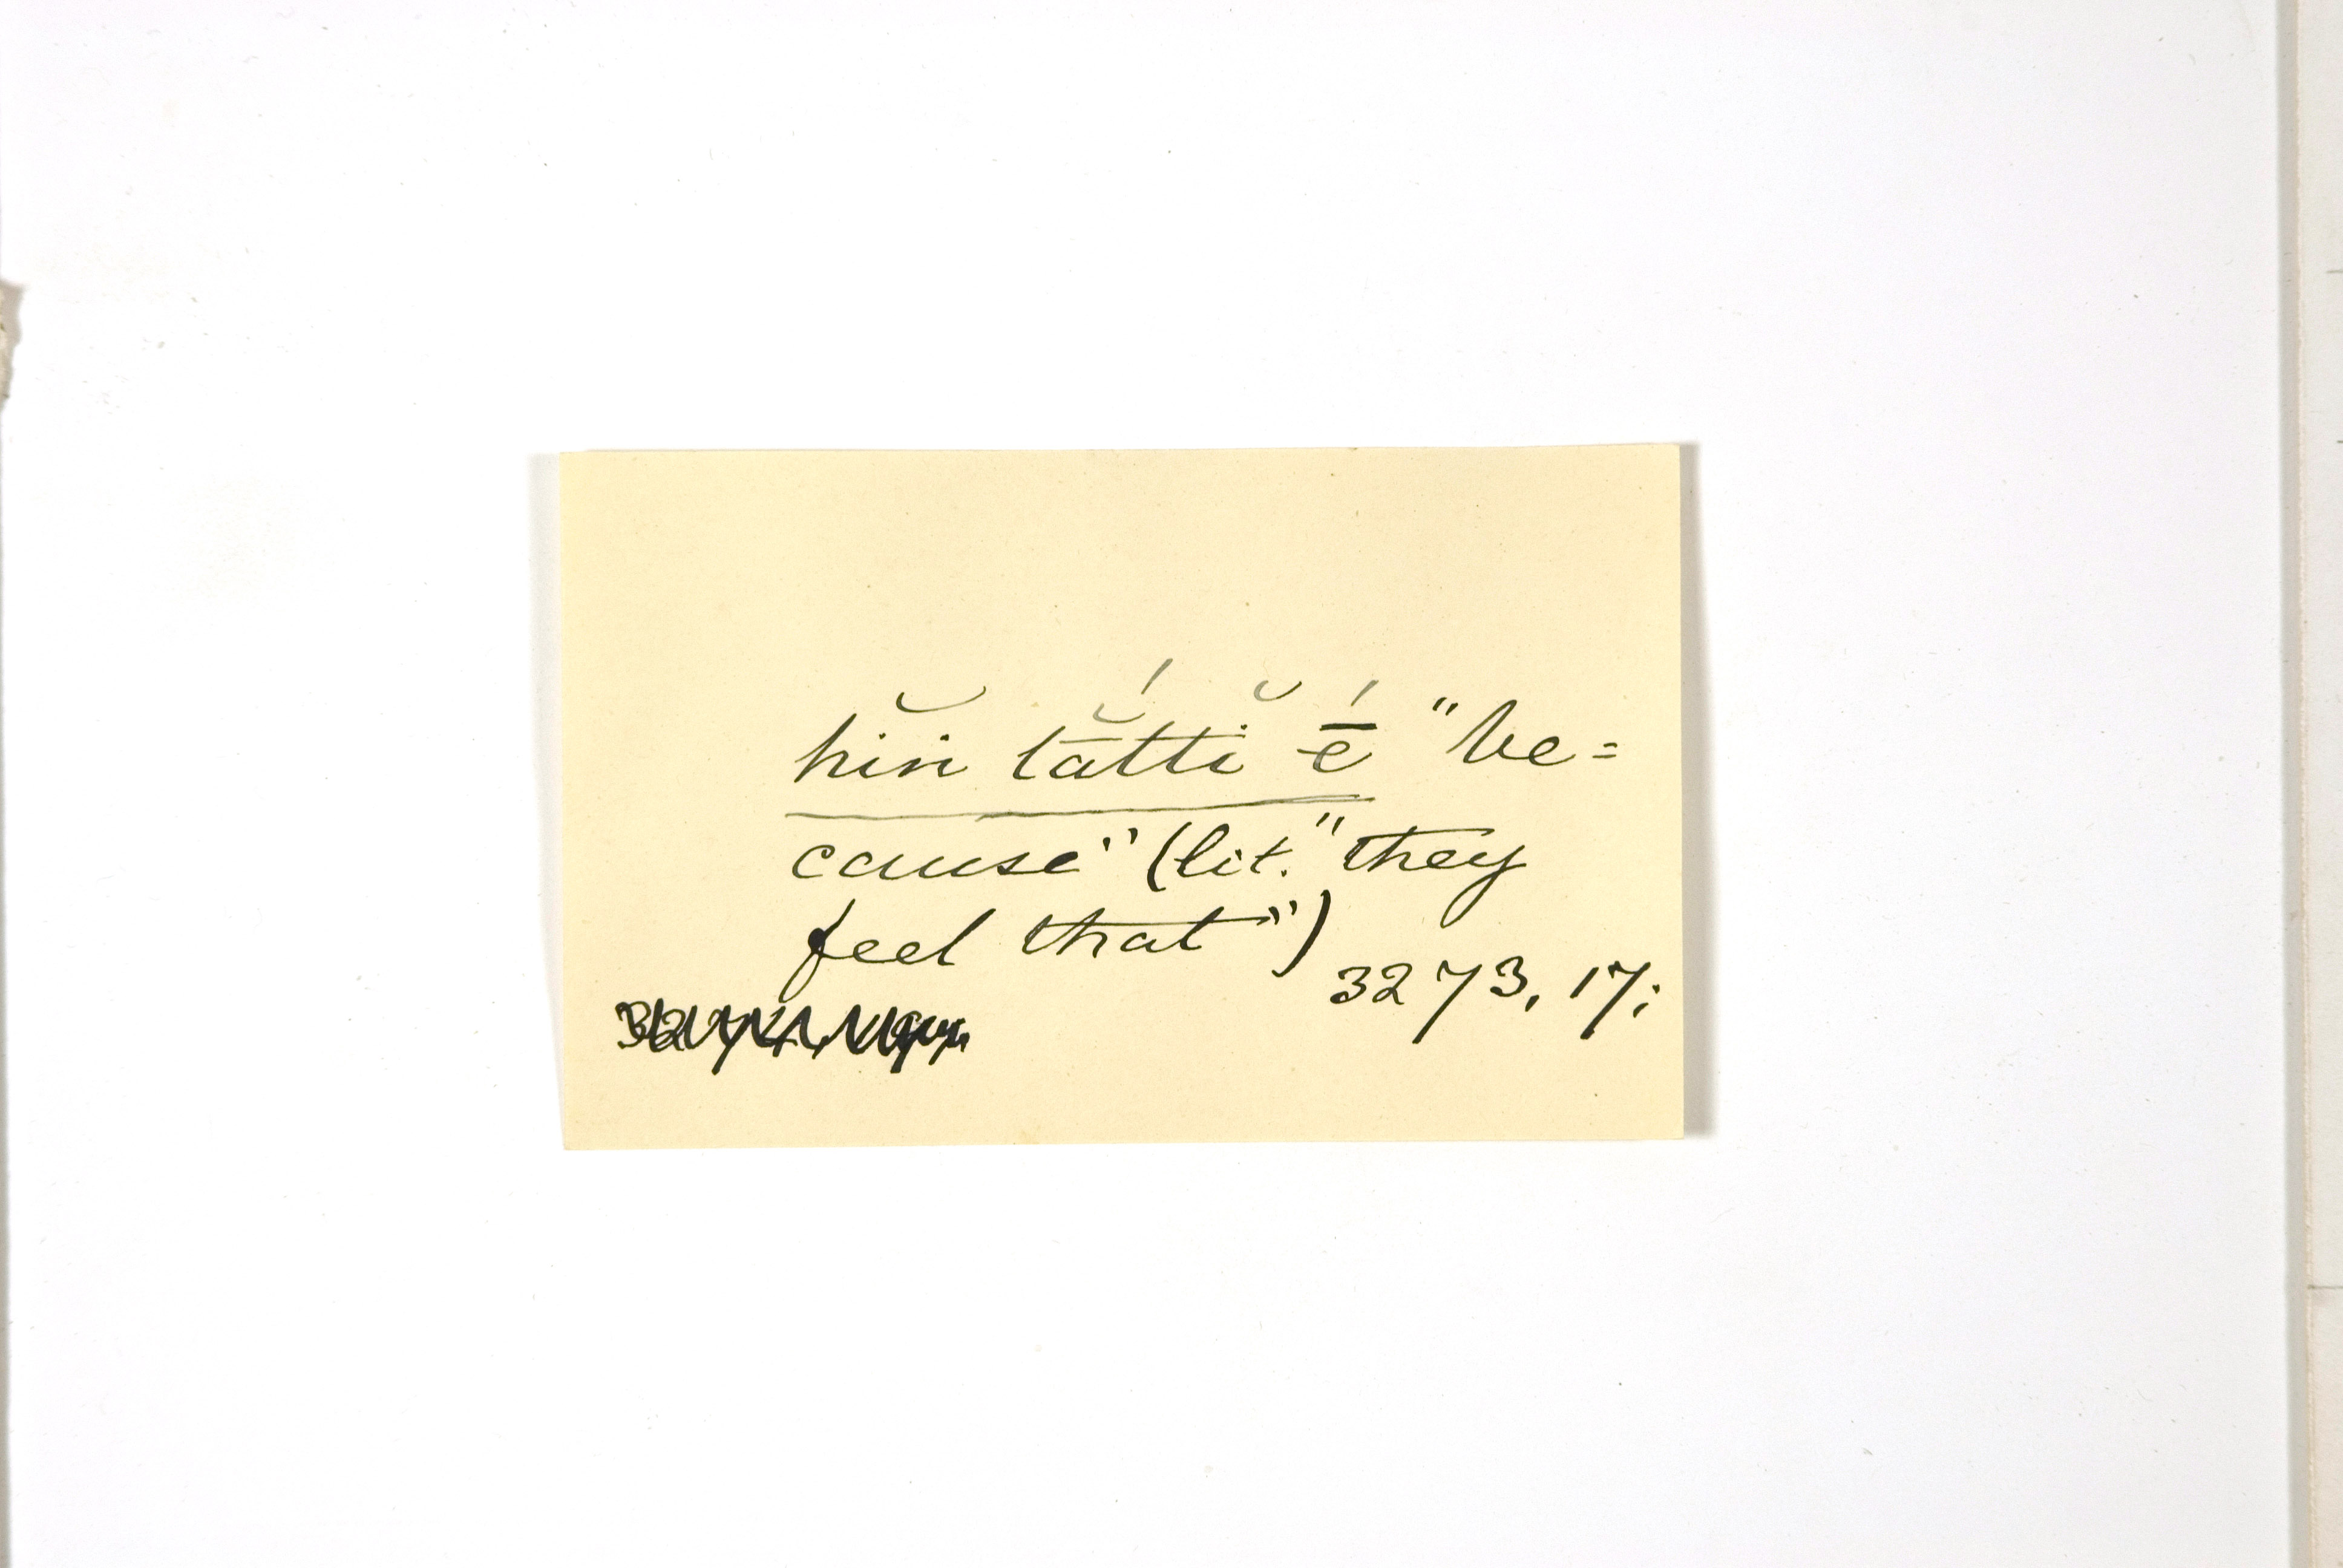 hĭn tắttĭ ḗ "be=
cause" (lit. "they
feel that")
3273, 17;